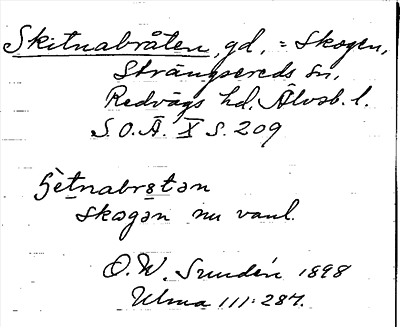 Skitnabråten, gd, = Skogen,
Strängsereds sn,
Redvägs hd. Älvsb. l.
S.O.Ä. X s. 209
skogən nu vanl.
O.W. Sundén 1898
Ulma 111:287.